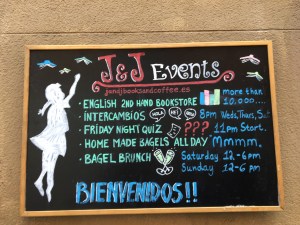 J&J Events
jandjbooksandcoffee.es
• ENGLISH 2ND HAND BOOKSTORE more than 10,000....
• INTERCAMBIOS HOLA HEY 8pm Weds, Thurs, S
• FRIDAY NIGHT QUIZ ??? 11pm Start..
• HOME MADE BAGELS ALL DAY Mmmm.
• BAGEL BRUNCH Saturday 12-6pm
Sunday 12-6pm
BIENVENIDOS!!